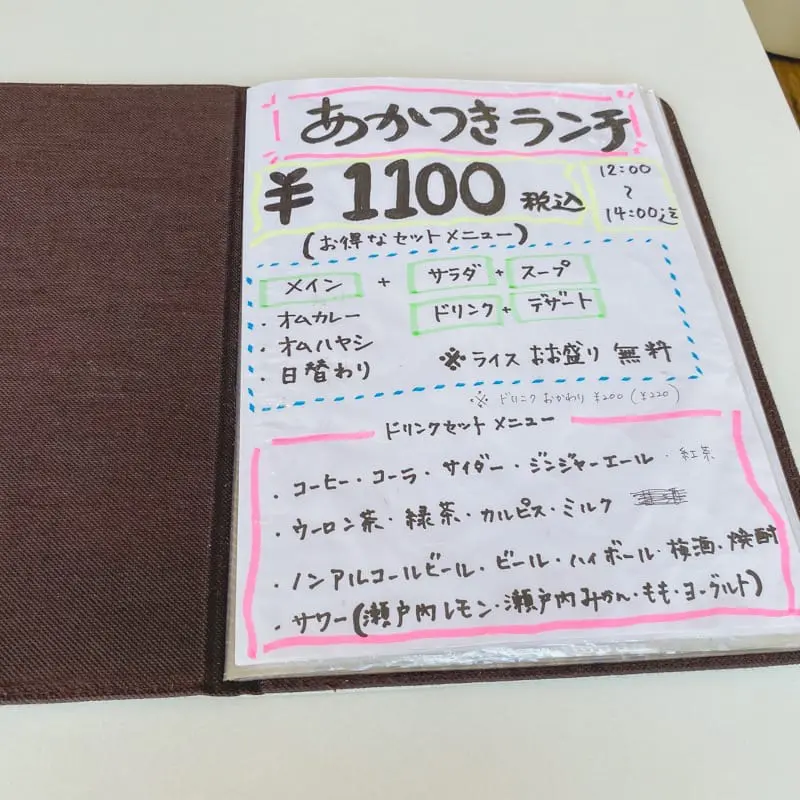 あかつきランチ
¥ 1100 税込
12:00
〜
14:00迄
(お得なセットメニュー)
メイン + サラダ + スープ
ドリンク + デザート
・オムカレー
・オムハヤシ
・日替わり
※ライス おお盛り 無料
※ ドリンクおかわり ¥200 (¥220)
ドリンクセット メニュー
・コーヒー・コーラ・サイダー・ジンジャーエール・紅茶
・ウーロン茶・緑茶・カルピス・ミルク
・ノンアルコールビール・ビール・ハイボール・梅酒・焼酎
・サワー(瀬戸内レモン・瀬戸内みかん・もも・ヨーグルト)